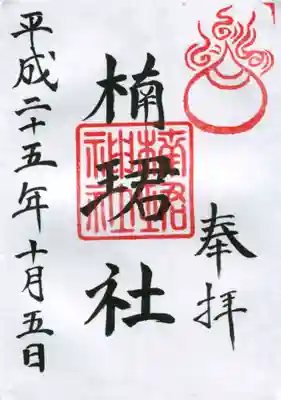 奉拝
楠珺社
楠珺神社
平成二十五年十月五日